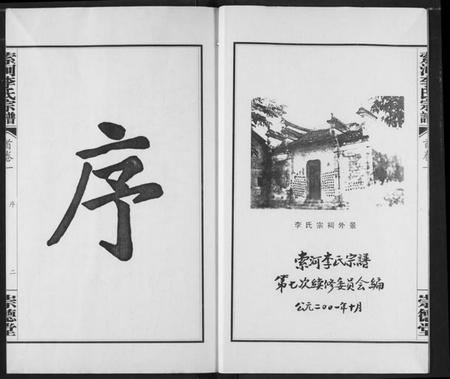 索河李氏宗譜
首卷一
崇德堂
李氏宗祠外景
索河李氏宗譜
第七次續修委员会編
公元二00一年十月
序
索河李氏宗譜
首卷一
序
二
崇德堂